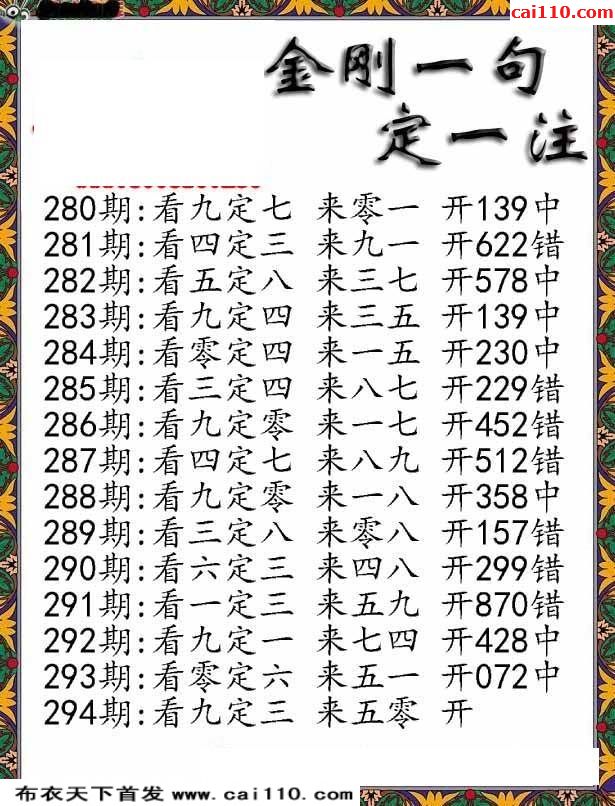 cai110.com
金刚一句
定一注
280期:看九定七 来零一 开139中
281期:看四定三 来九一 开622错
282期:看五定八 来三七 开578中
283期:看九定四 来三五 开139中
284期:看零定四 来一五 开230中
285期:看三定四 来八七 开229错
286期:看九定零 来一七 开452错
287期:看四定七 来八九 开512错
288期:看九定零 来一八 开358中
289期:看三定八 来零八 开157错
290期:看六定三 来四八 开299错
291期:看一定三 来五九 开870错
292期:看九定一 来七四 开428中
293期:看零定六 来五一 开072中
294期:看九定三 来五零 开
布衣天下首发 www.cai110.com